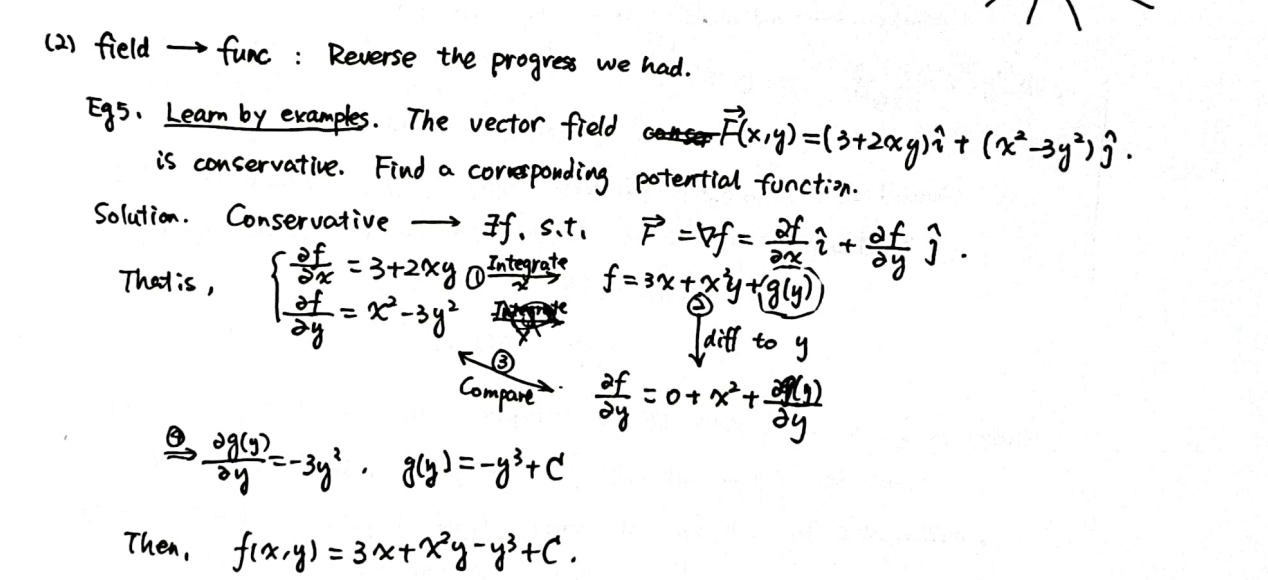 (2) field → func : Reverse the progress we had.
Eg5. Learn by examples. The vector field F⃗(x,y)=(3+2xy)î + (x²-3y²)ĵ.
is conservative. Find a corresponding potential function.
Solution. Conservative → ∃f, s.t. F⃗ = ∇f = ∂f/∂x î + ∂f/∂y ĵ.
That is, { ∂f/∂x = 3+2xy ① Integrate x → f = 3x + x²y + g(y)
∂f/∂y = x²-3y²
② ↓ diff to y
③ Compare ∂f/∂y = 0 + x² + ∂g(y)/∂y
④ ⇒ ∂g(y)/∂y = -3y², g(y) = -y³+C
Then, f(x,y) = 3x+x²y-y³+C.